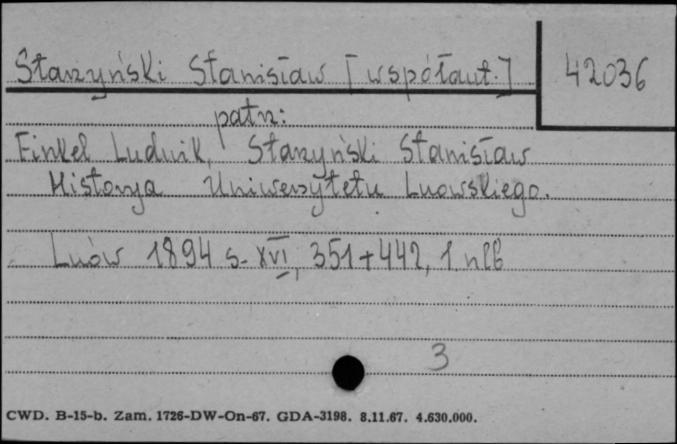 Starzyński Stanisław [współaut.]
42036
patrz:
Finkel Ludwik, Starzyński Stanisław
Historya Uniwersytetu Lwowskiego.
Lwów 1894 s. XVI, 351+442, 1 nlb
3
CWD. B-15-b. Zam. 1726-DW-On-67. GDA-3198. 8.11.67. 4.630.000.